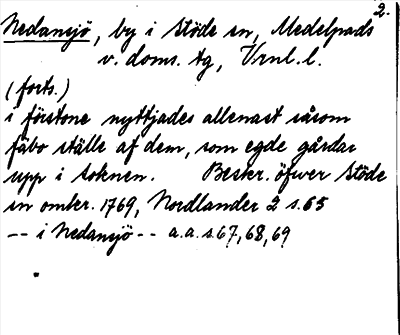 2.
Nedansjö, by i Stöde sn, Medelpads
v. doms. tg, Vrnl. l.
(forts.)
i förstone nyttjades allenast såsom
fäbo ställe af dem, som egde gårdar
upp i soknen. Beskr. öfwer Stöde
sn omkr. 1769, Nordlander 2 s. 65
-- i Nedansjö -- a.a. s. 67, 68, 69